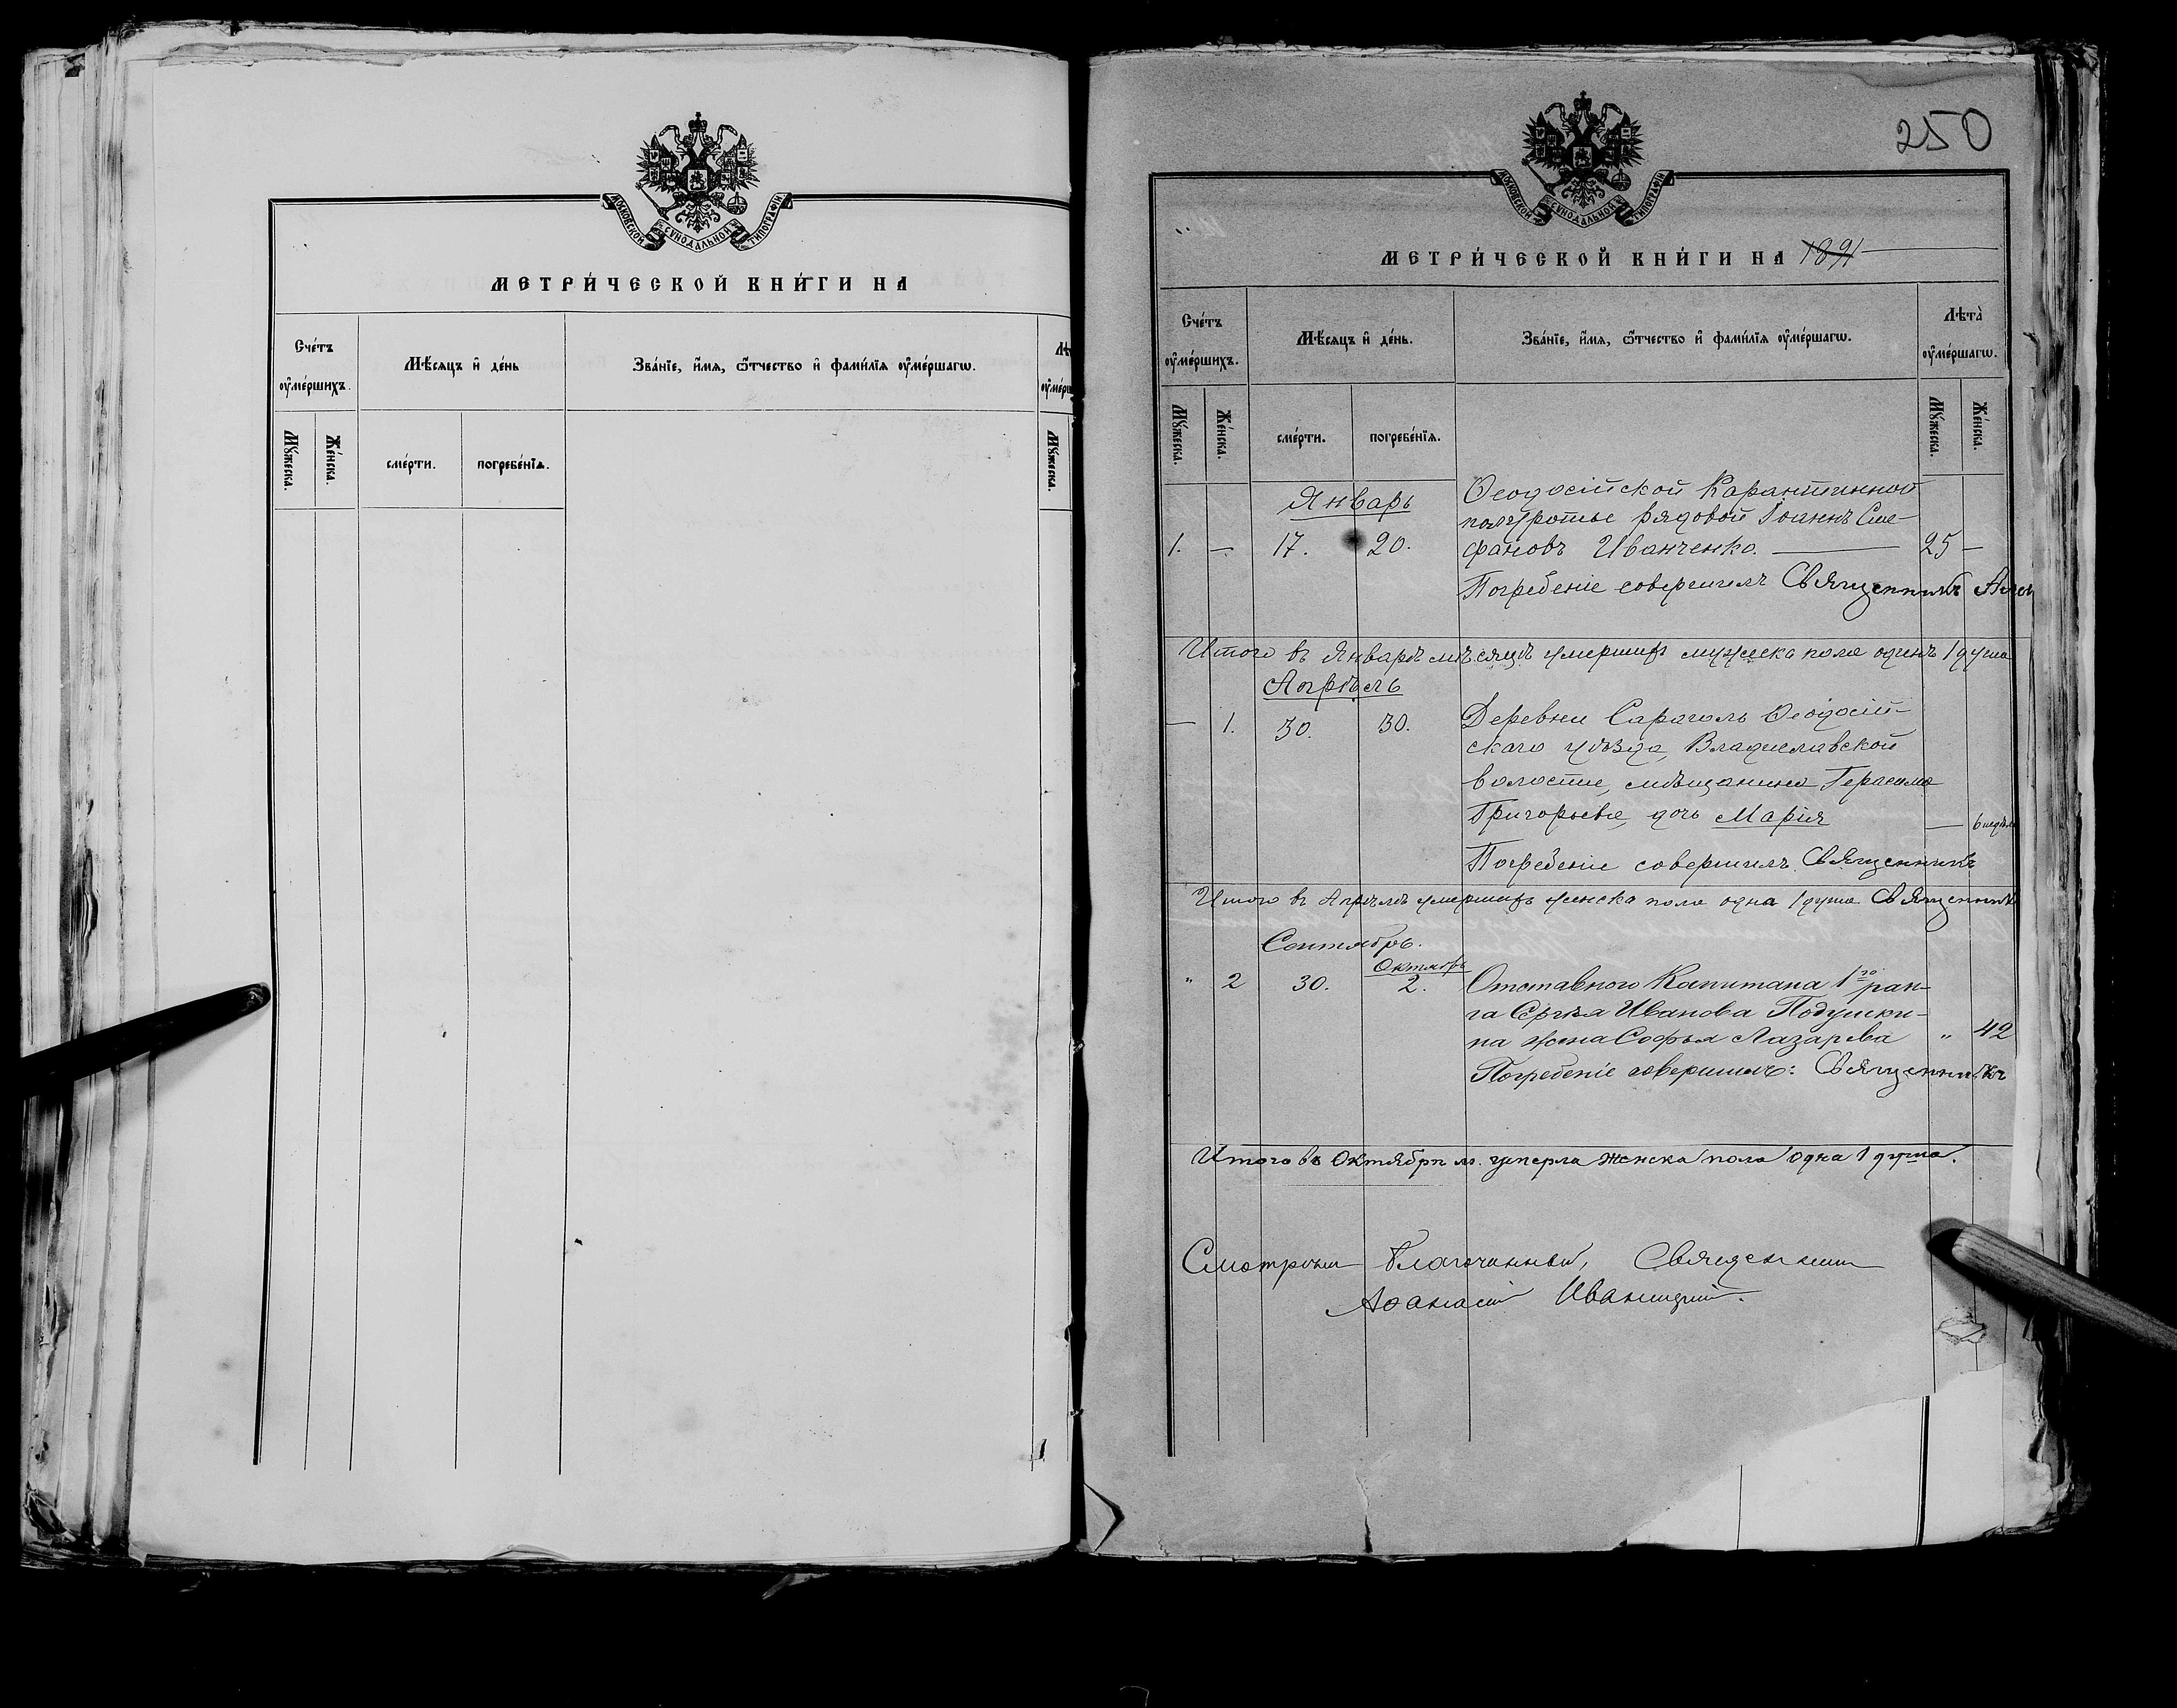 МОСКОВСКОЙ СѴНОДАЛЬНОЙ ТИПОГРАФІИ
МЕТРИ́ЧЕСКОЙ КНИ́ГИ НА
Сче́тъ ᲂу҆ме́ршихъ.
Мѣ́сяцъ и҆ де́нь
Зва́нїе, и҆́мя, ѻ҆́тчество и҆ фами́лїя ᲂу҆ме́ршагѡ.
Мꙋ́жеска.
Же́нска.
сме́рти.
погребе́нїѧ.
Мꙋ́жеска.
250
МОСКОВСКОЙ СѴНОДАЛЬНОЙ ТИПОГРАФІИ
МЕТРИ́ЧЕСКОЙ КНИ́ГИ НА 1891
Сче́тъ ᲂу҆ме́ршихъ.
Мѣ́сяцъ и҆ де́нь.
Зва́нїе, и҆́мя, ѻ҆́тчество и҆ фами́лїя ᲂу҆ме́ршагѡ.
Лѣта̀ ᲂу҆ме́ршагѡ.
Мꙋ́жеска.
Же́нска.
сме́рти.
погребе́нїѧ.
Мꙋ́жеска.
Же́нска.
Январь
Ѳеодосійской Карантинной
полуротые рядовой Іоаннъ Сте-
1. — 17. 20. фановъ Иванченко. — 25 —
Погребеніе совершилъ Священникъ
Итого въ Январѣ мѣсяцѣ умершихъ мужеска пола одинъ 1 душа
Апрѣль
— 1. 30. 30. Деревни Сараголь Ѳеодосій-
скаго уѣзда, Владиславской
волости, мѣщанина Герасима
Григорьева, дочь Марія — 6 недѣль
Погребеніе совершилъ Священникъ
Итого въ Апрѣлѣ умершихъ женска пола одна 1 душа Священникъ
Сентябрь.
Октябрь
" 2 30. 2. Отставного Капитана 1го ран-
га Сергѣя Иванова Подушки-
на жена Софья Лазарева " 42
Погребеніе совершилъ: Священникъ
Итого въ Октябрѣ м. умерла женска пола одна 1 душа.
Смотрѣлъ Благочинный, Священникъ
Аѳанасій Иваницкій.